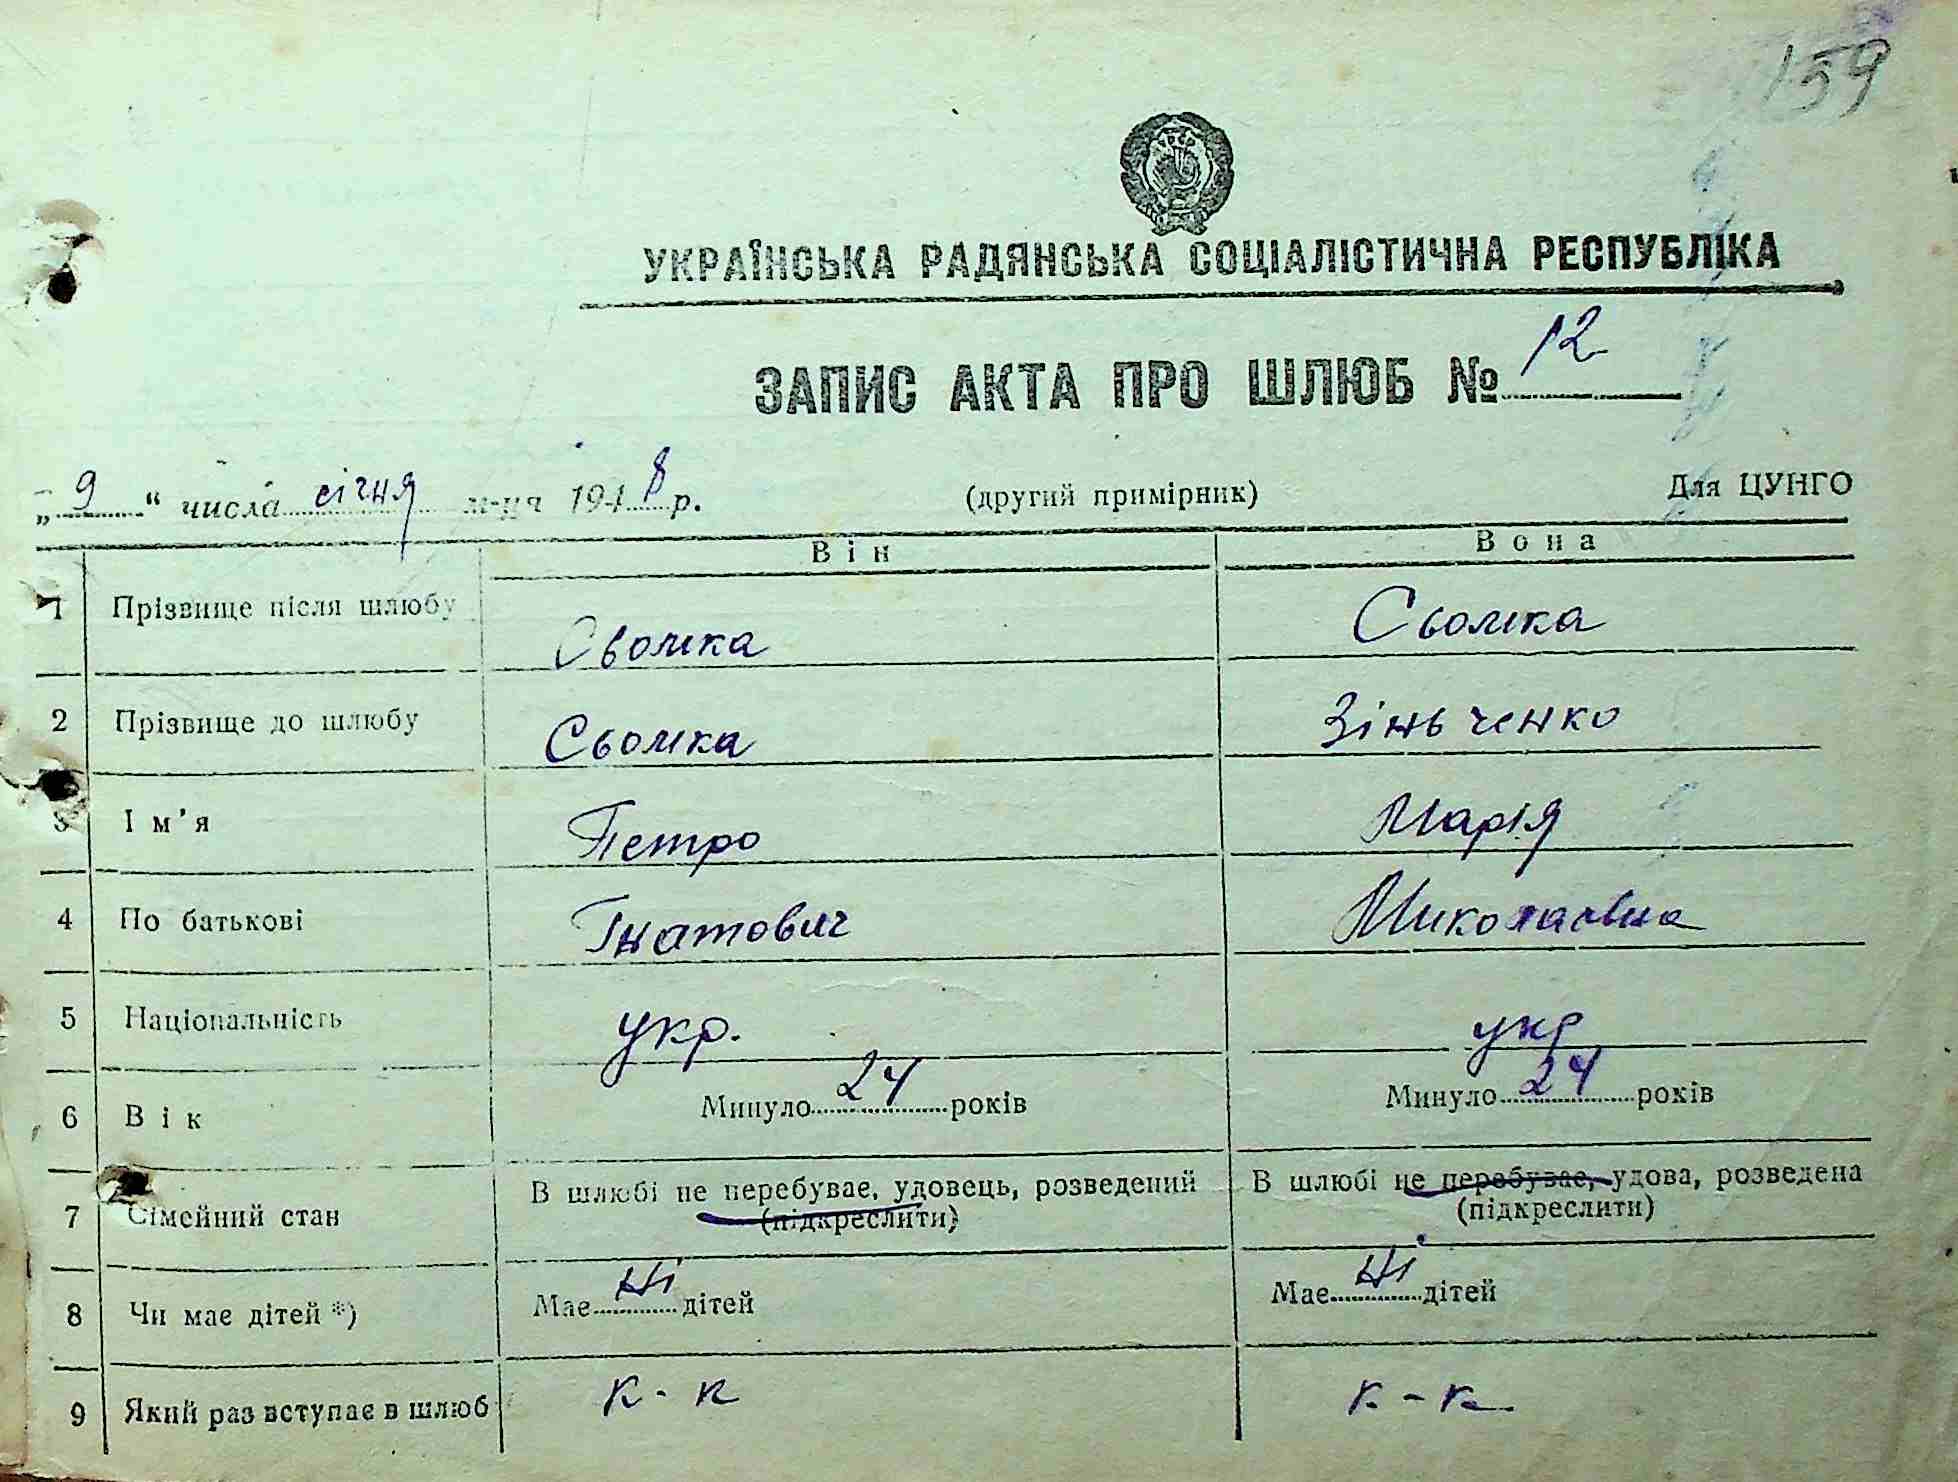 159
УКРАЇНСЬКА РАДЯНСЬКА СОЦІАЛІСТИЧНА РЕСПУБЛІКА
ЗАПИС АКТА ПРО ШЛЮБ № 12
„9“ числа січня м-ця 1948 р. (другий примірник) Для ЦУНГО
Він Вона
1 Прізвище після шлюбу Сьомка Сьомка
2 Прізвище до шлюбу Сьомка Зіньченко
3 Ім’я Петро Марія
4 По батькові Гнатович Миколаївна
5 Національність укр. укр
6 Вік Минуло 24 років Минуло 24 років
7 Сімейний стан В шлюбі не перебуває, удовець, розведений (підкреслити) В шлюбі не перебуває, удова, розведена (підкреслити)
8 Чи має дітей *) Має ні дітей Має ні дітей
9 Який раз вступає в шлюб